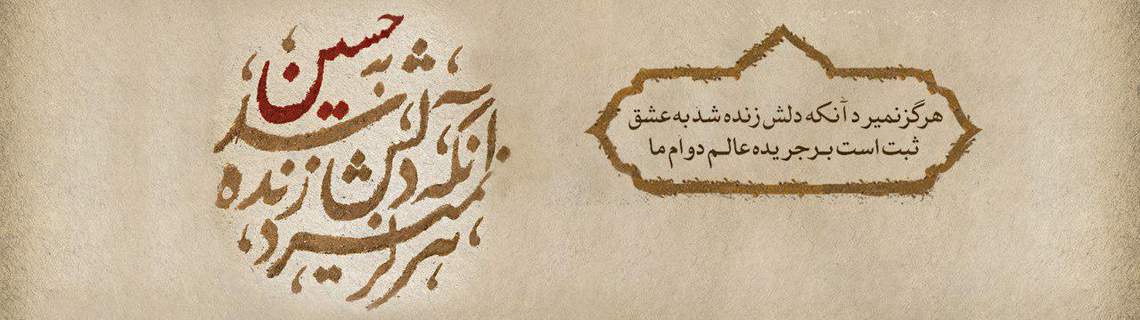 هرگز نمیرد آنکه دلش زنده شد به عشق
ثبت است بر جریده عالم دوام ما
هرگز
نمیرد
آنکه دلش زنده
شد به
حسین